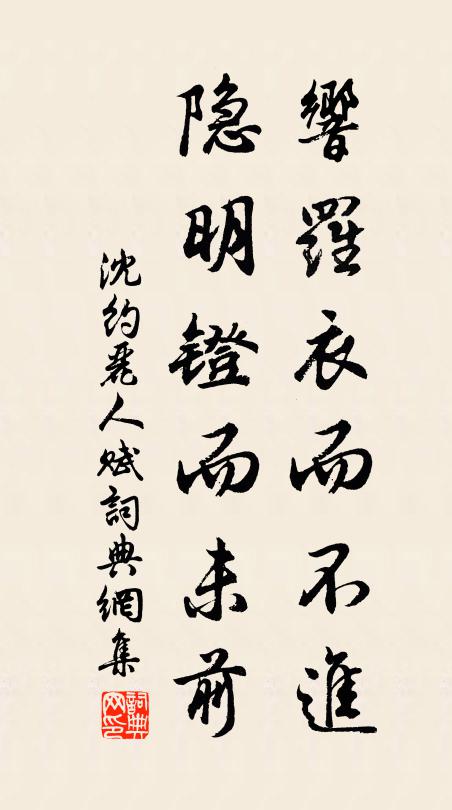 響羅衣而不進
隐明鐙而未前
沈約麗人賦詞典網集
詞典网印